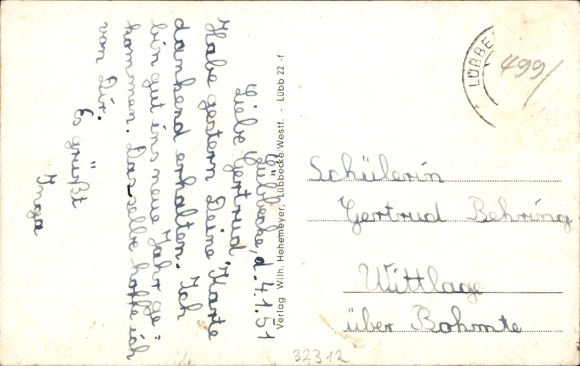 Lübbecke, d. 4.1.51
Liebe Gertrud,
Habe gestern Deine Karte
dankend erhalten. Ich
bin gut ins neue Jahr ge=
kommen. Dasselbe hoffe ich
von Dir.
Es grüßt
Inga
Verlag Wilh. Hehemeyer, Lübbecke/Westf. - Lübb 22 -f
LÜBBE
499/
Schülerin
Gertrud Behring
Wittlage
über Bohmte
32312